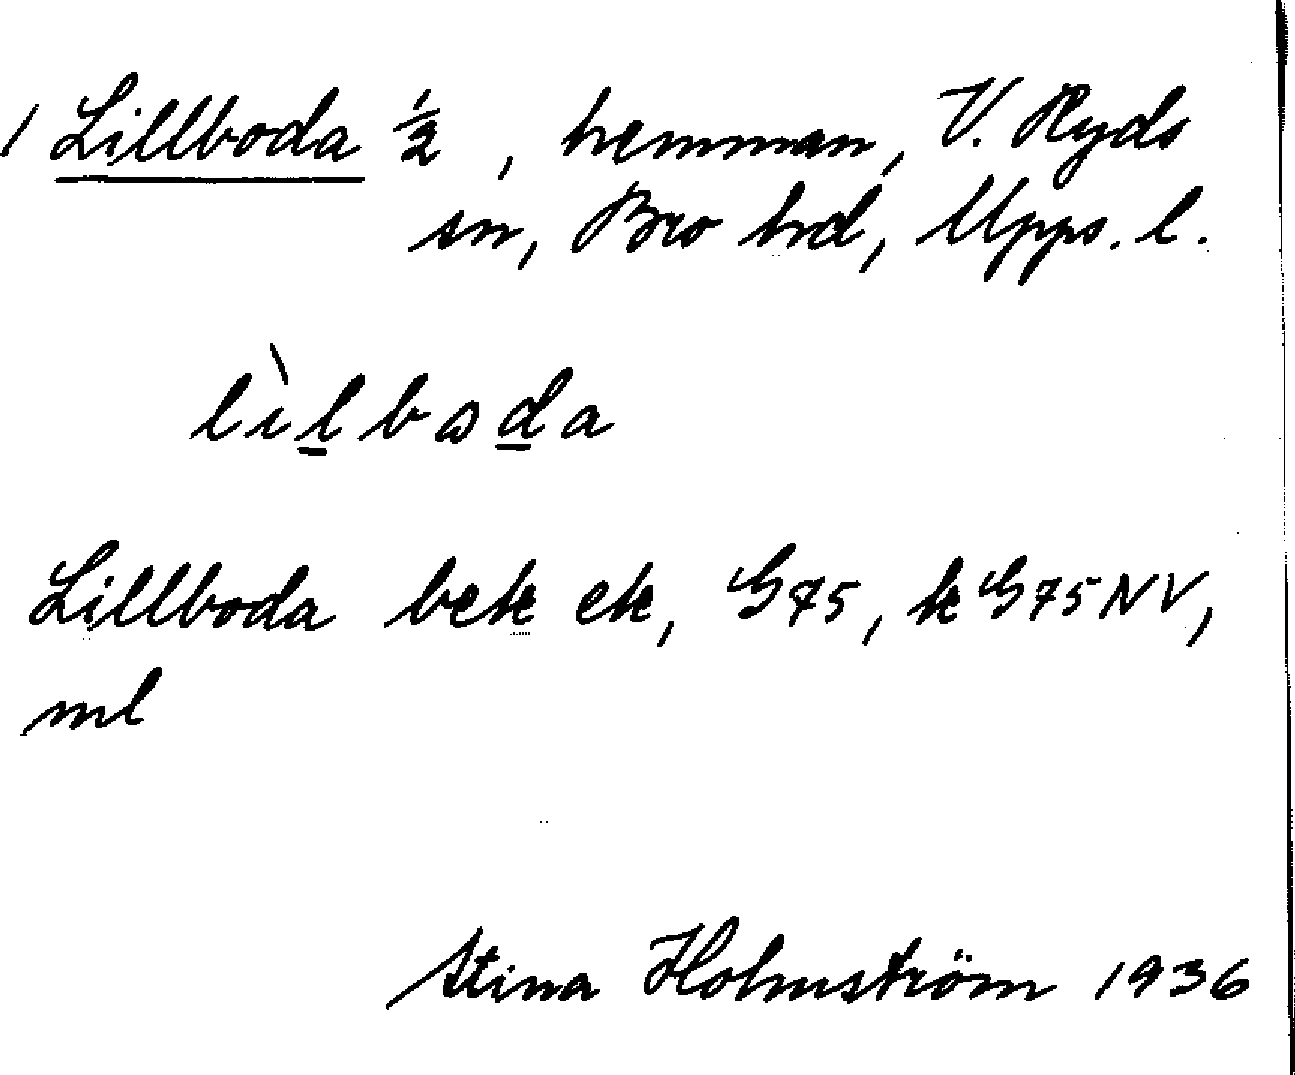 1 Lillboda ½, hemman, V. Ryds
sn, Bro hd, Upps. l.
lìlbωda
Lillboda bek ek, G75, k G75NV,
ml
Stina Holmström 1936